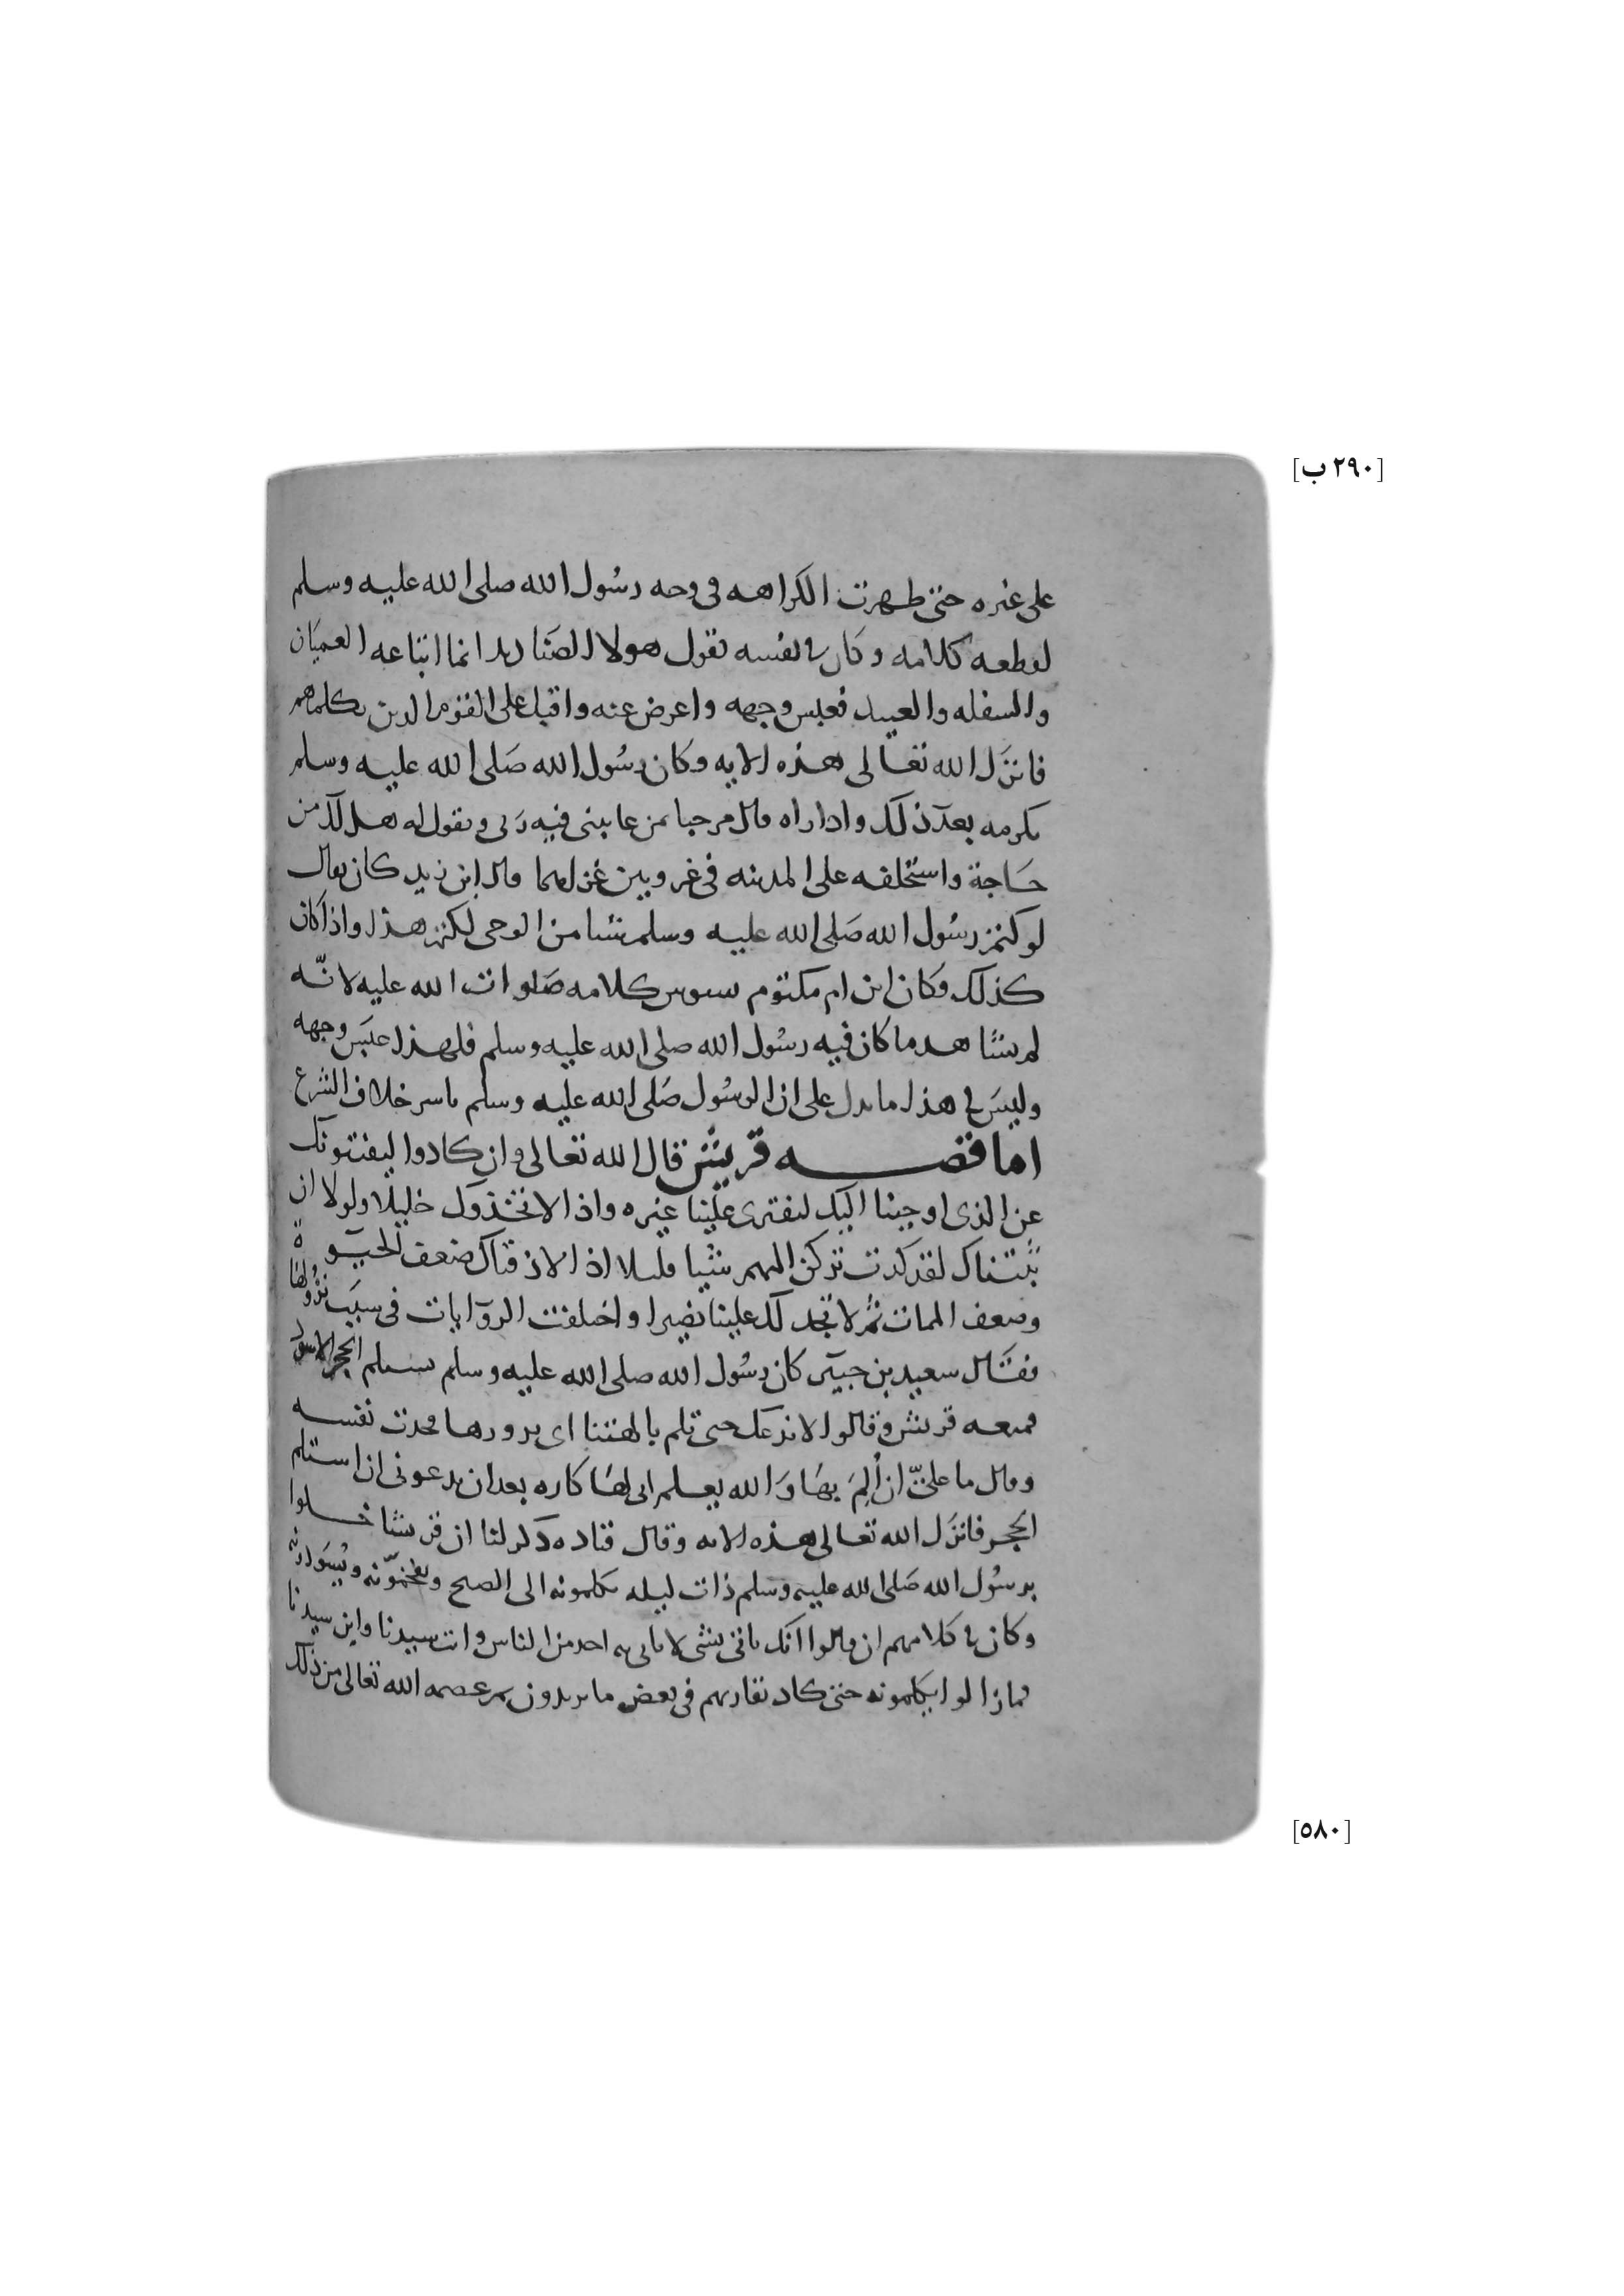 [٢٩٠ ب]
على غيره حتى ظهرت الكراهه في وجه رسول الله صلى الله عليه وسلم
لقطعه كلامه وكان في نفسه يقول هولا الصناديد انما اتباعه العميان
والسفله والعبيد فعبس وجهه واعرض عنه واقبل على القوم الذين يكلمهم
فانزل الله تعالى هذه الايه وكان رسول الله صلى الله عليه وسلم
يكرمه بعد ذلك واذا راه قال مرحبا بمن عاتبني فيه ربي ويقول له هل لك من
حاجة واستخلفه على المدينه في غزوتين غزاهما قال ابن زيد كان يقال
لو كتم رسول الله صلى الله عليه وسلم شيا من الوحي لكتم هذا واذا كان
كذلك فكان ابن ام مكتوم كلامه صلوات الله عليه لانه
لم يشاهد ما كان فيه رسول الله صلى الله عليه وسلم فلهذا عبس وجهه
وليس في هذا ما يدل على ان الرسول صلى الله عليه وسلم خلاف الشرع
اما قصه قريش قال الله تعالى وان كادوا ليفتنونك
عن الذي اوحينا اليك لتفترى علينا غيره واذا لاتخذوك خليلا ولولا ان
ثبتناك لقد كدت تركن اليهم شيا قليلا اذا لاذقناك ضعف الحيوة
وضعف الممات ثم لا تجد لك علينا نصيرا واختلفت الروايات في سبب نزولها
فقال سعيد بن جبير كان رسول الله صلى الله عليه وسلم يستلم الحجر الاسود
فمنعه قريش وقالوا لا ندعك حتى تلم بالهتنا اي بزورها فحدث نفسه
وقال ما علي ان ألم بها والله يعلم اني لها كاره بعد ان يدعوني ان استلم
الحجر فانزل الله تعالى هذه الايه وقال قتاده ذكر لنا ان قريشا خلوا
برسول الله صلى الله عليه وسلم ذات ليله يكلمونه الى الصبح ويفخمونه ويسودونه
وكان في كلامهم ان قالوا انك تاتي بشي لا ياتي به احد من الناس وانت سيدنا وابن سيدنا
فما زالوا يكلمونه حتى كاد يقاربهم في بعض ما يريدون ثم عصمه الله تعالى من ذلك
[٥٨٠]